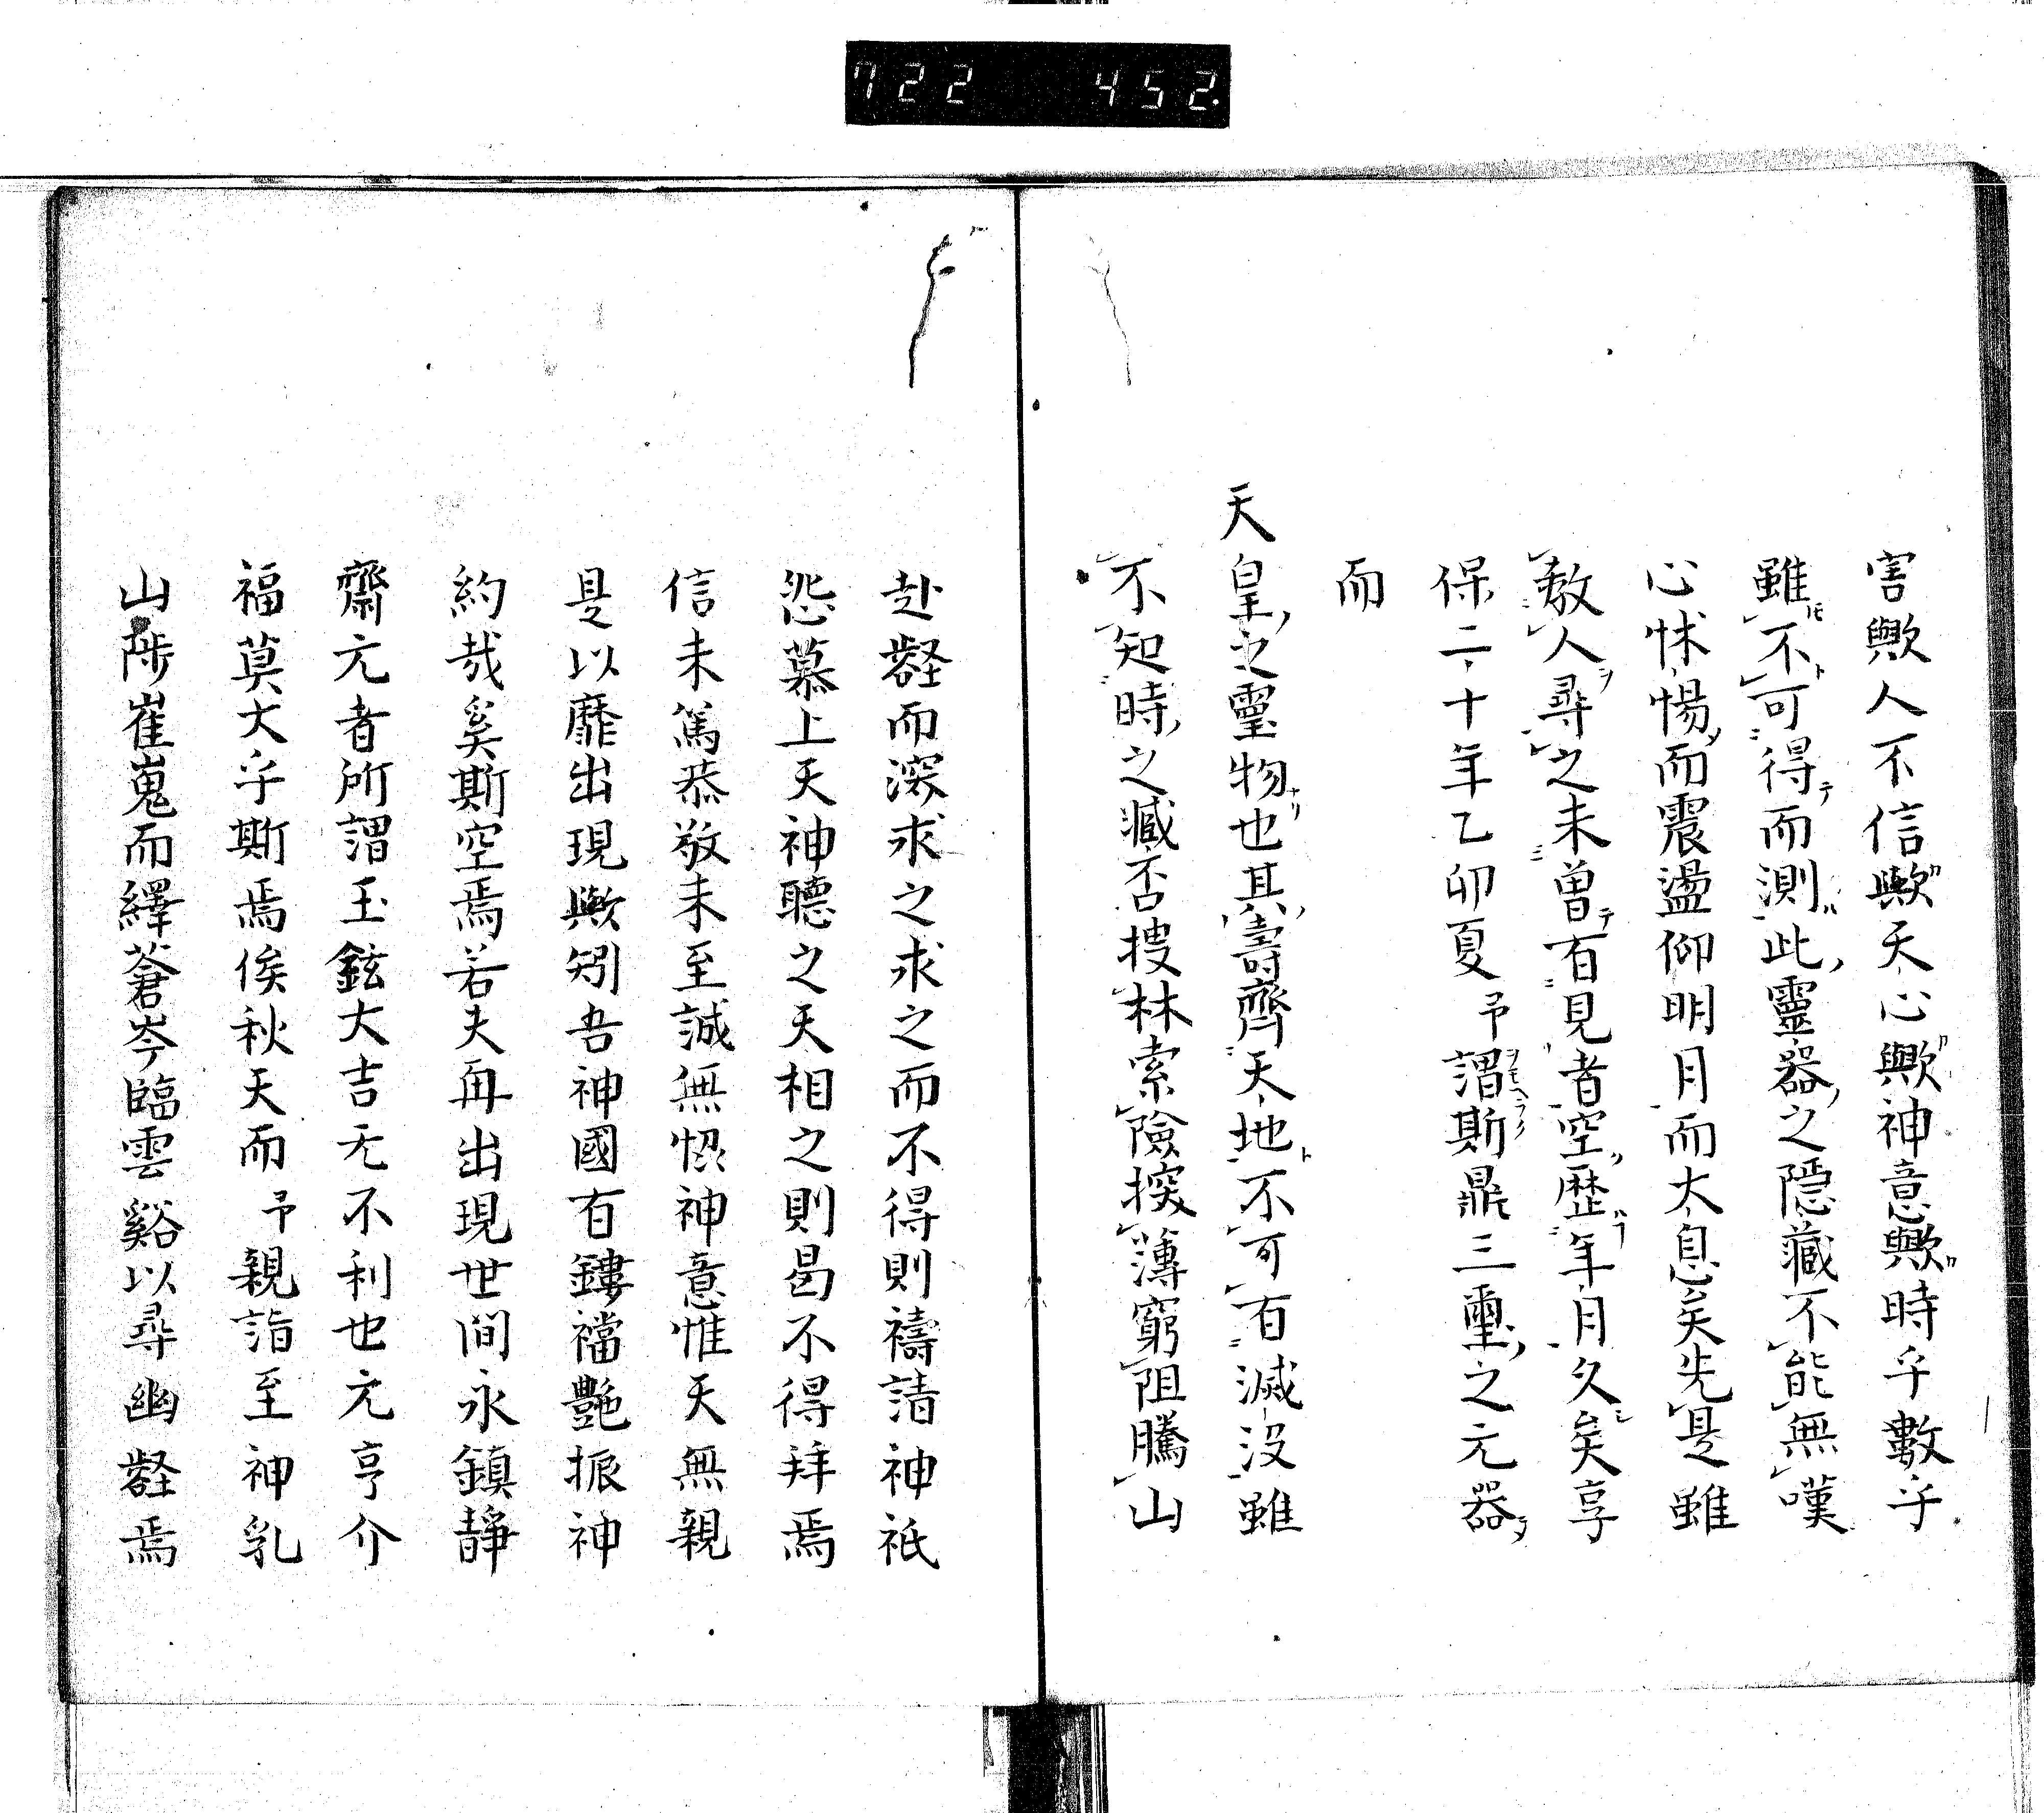 722 452.
害歟人不信歟天心歟神意歟時乎數乎
雖不可得而測此靈器之隱藏不能無嘆
心怵惕而震盪仰明月而太息矣先是雖
敎人尋之未曽有見者空歴年月久矣享
保二十年乙卯夏予謂斯鼎三璽之元器
而
天皇之靈物也其壽齊天地不可有滅没雖
不知時之臧否搜林索險探薄窮阻騰山
赴壑而深求之求之而不得則禱請神祇
怨慕上天神聽之天相之則曷不得拜焉
信未篤恭敬未至誠無恆神意惟天無親
是以靡出現歟矧吾神國有鏤襠艶振神
約哉奚斯空焉若夫再出現世間永鎮靜
齋元者所謂玉鉉大吉无不利也元亨介
福莫大乎斯焉俟秋天而予親詣至神乳
山陟崔嵬而繹蒼岑臨雲谿以尋幽壑焉